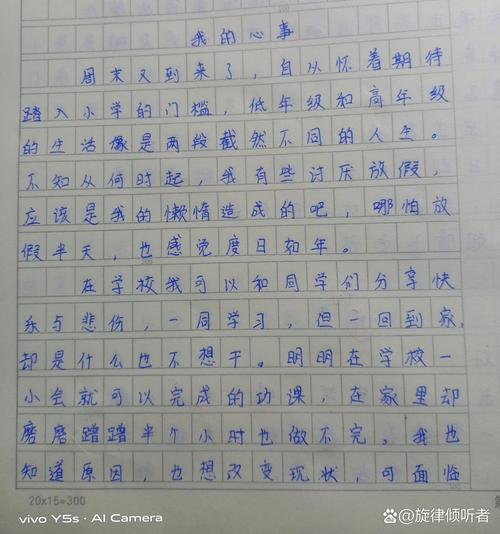 我的心事
周末又到来了，自从怀着期待
踏入小学的门槛，低年级和高年级
的生活像是两段截然不同的人生。
不知从何时起，我有些讨厌放假，
应该是我的懒惰造成的吧，哪怕放
假半天，也感觉度日如年。
在学校我可以和同学们分享快
乐与悲伤，一同学习，但一回到家，
却是什么也不想干。明明在学校一
小会就可以完成的功课，在家里却
磨磨蹭蹭半个小时也做不完，我也
知道原因，也想改变现状，可面临
20×15=300
vivo Y5s · AI Camera
知乎 @旋律倾听者